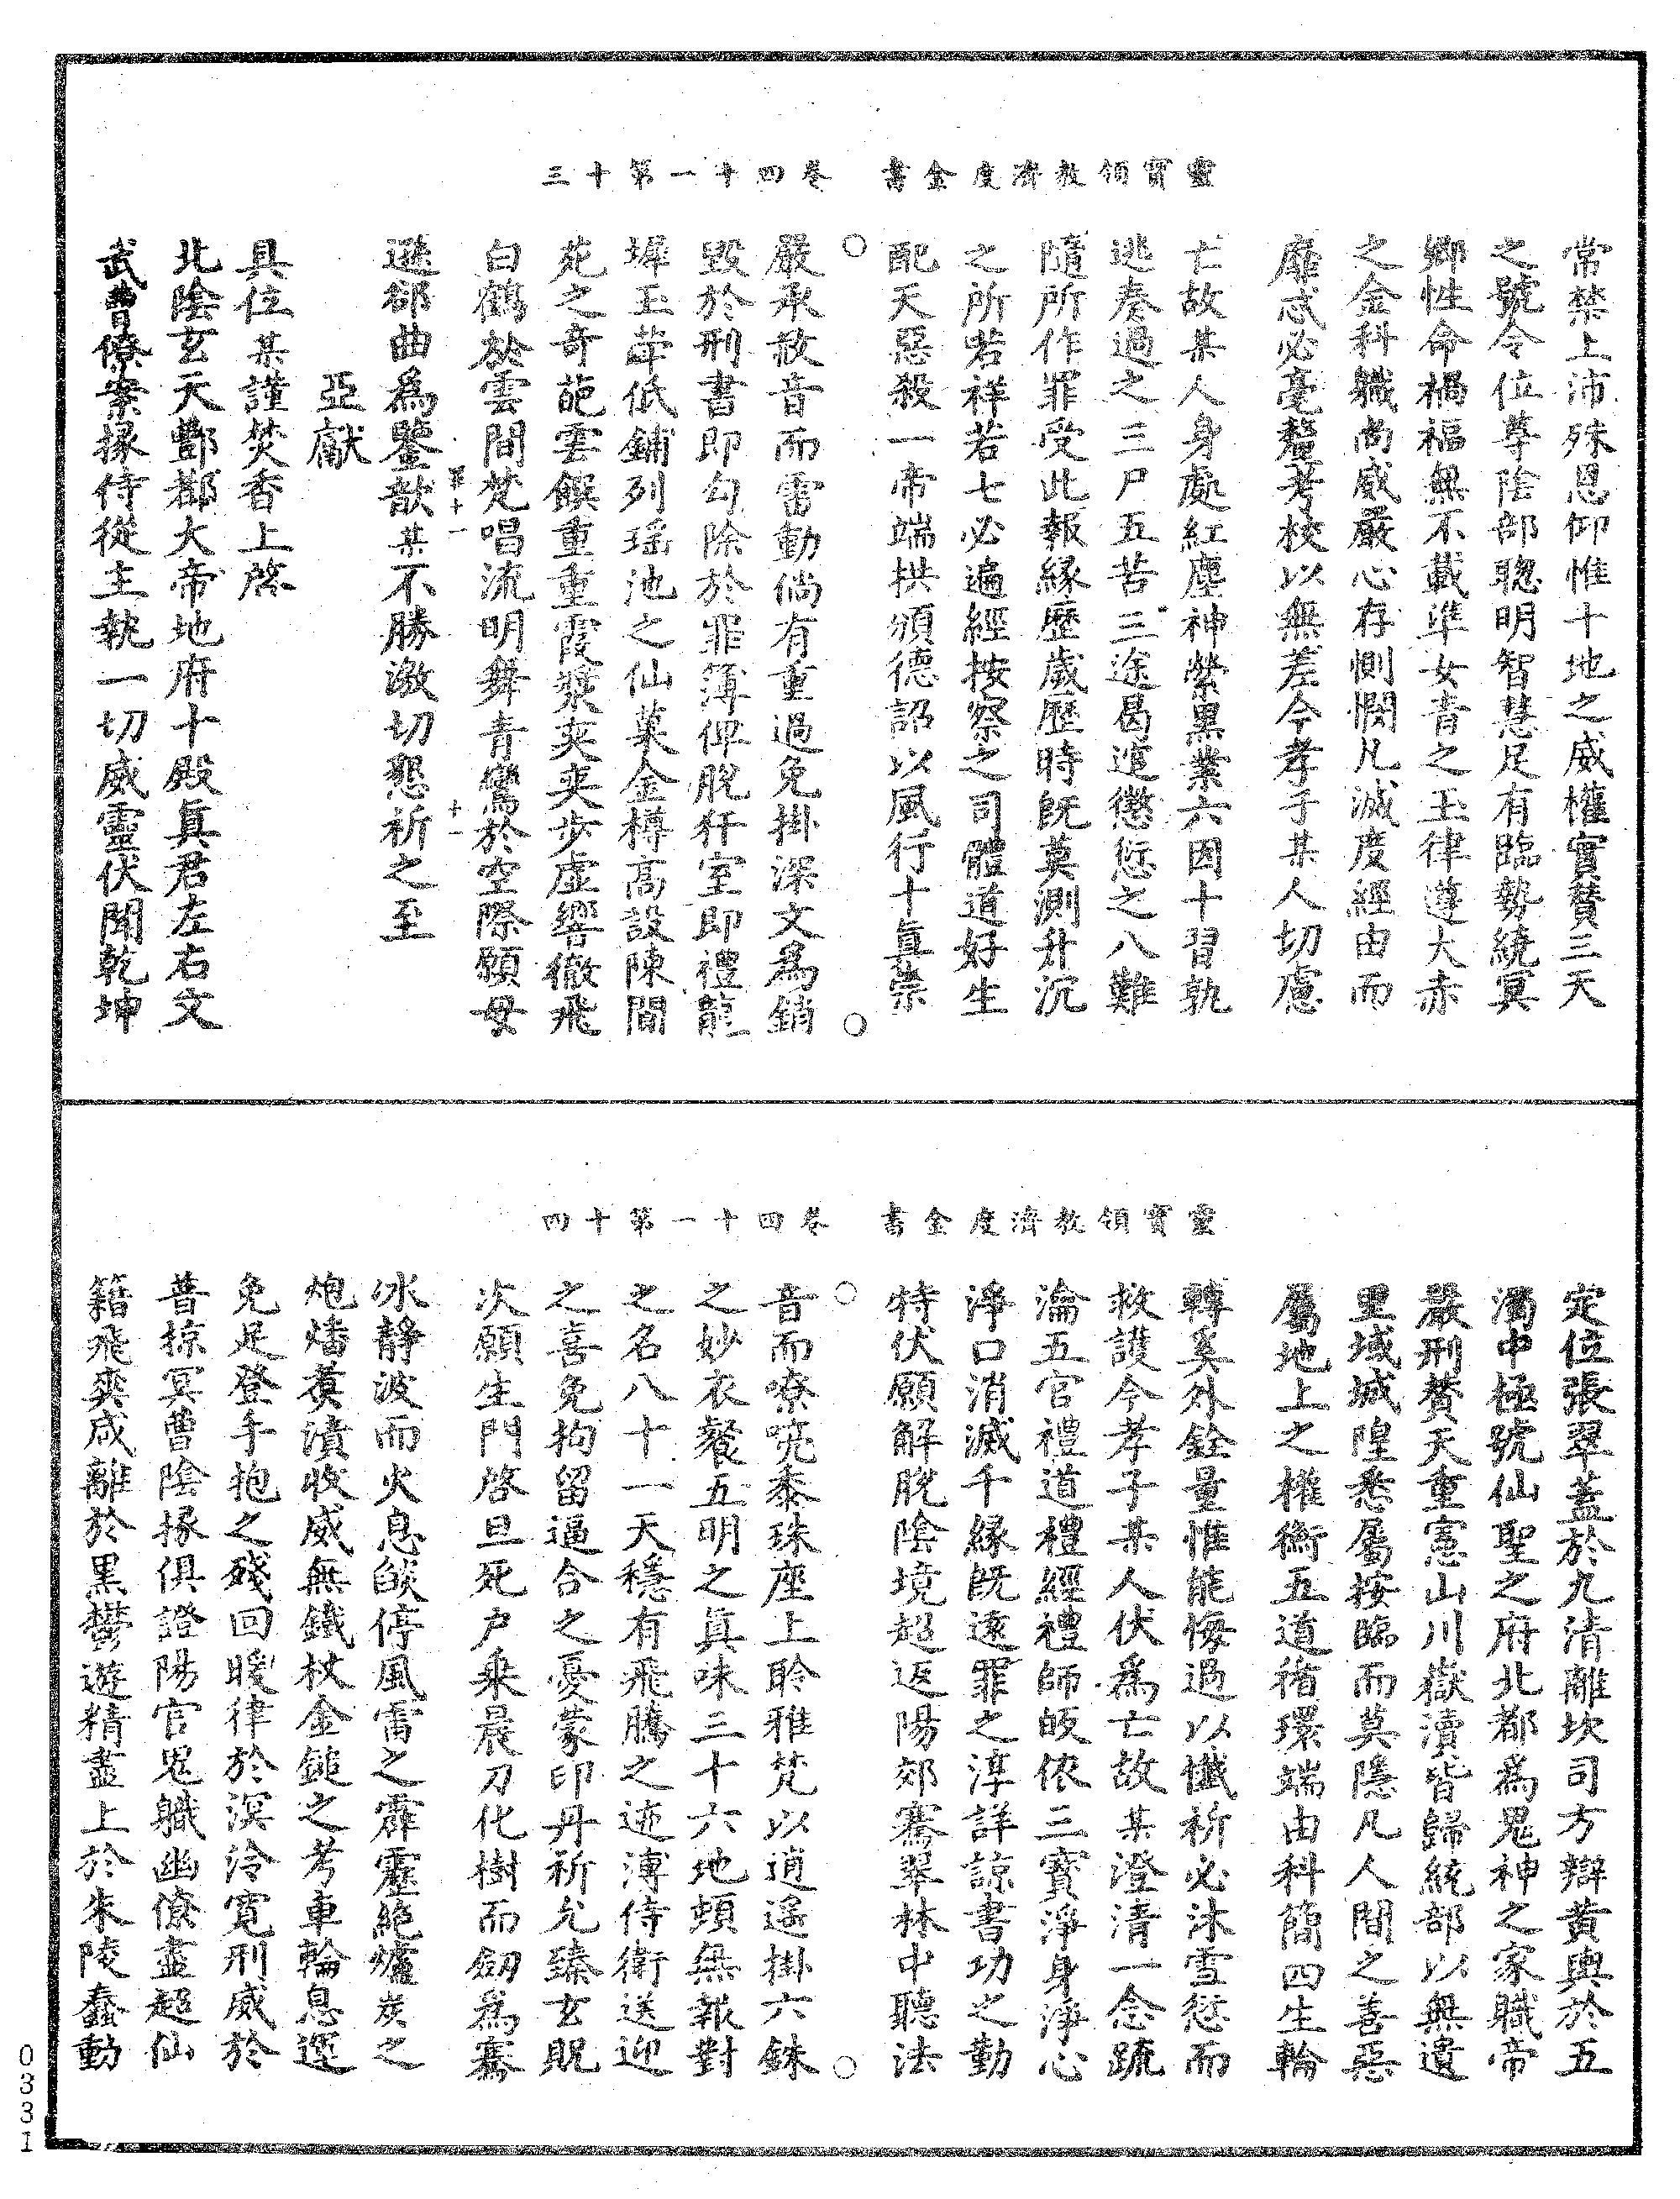 靈寶領教濟度金書　卷四十一第十三
常禁上沛殊恩仰惟十地之威權實贊三天
之號令位尊陰部聰明智慧足有臨勢統冥
鄉性命禍福無不載準女青之玉律遵大赤
之金科職尚威嚴心存惻憫凡滅度經由而
靡忒必毫釐考校以無差今孝子某人切慮
亡故某人身處紅塵神縈黑業六因十習孰
逃奏過之三尸五苦三途曷逭懲愆之八難
隨所作罪受此報緣歷歲歷時既莫測升沉
之所若祥若七必遍經按察之司體道好生
配天惡殺一帝端拱頒德詔以風行十真崇
嚴承敕音而雷動倘有重過免掛深文為銷
毀於刑書即勾除於罪簿俾脫犴室即禮龍
墀玉華低鋪列瑤池之仙菓金樽高設陳閬
苑之奇葩雲饌重重霞漿奕奕步虛響徹飛
白鶴於雲間梵唱流明舞青鸞於空際願毋
第十一　十一
遜郤曲為鑒歆某不勝激切懇祈之至
亞獻
具位某謹焚香上啓
北陰玄天酆都大帝地府十殿真君左右文
武曹僚案掾侍從主執一切威靈伏聞乾坤
靈寶領教濟度金書　卷四十一第十四
定位張翠蓋於九清離坎司方辯黃輿於五
濁中極號仙聖之府北都為鬼神之家職帝
嚴刑贊天重憲山川嶽瀆皆歸統部以無遺
里域城隍悉屬按臨而莫隱凡人間之善惡
屬地上之權衡五道循環端由科簡四生輪
轉奚外銓量惟能悔過以懺祈必沐雪愆而
救護今孝子某人伏為亡故某澄清一念疏
瀹五官禮道禮經禮師皈依三寶淨身淨心
淨口消滅千緣既遠罪之淳詳諒書功之勤
特伏願解脫陰境超返陽郊騫翠林中聽法
音而嘹喨黍珠座上聆雅梵以逍遙掛六銖
之妙衣餐五明之真味三十六地頓無報對
之名八十一天穩有飛騰之迹溥侍衛送迎
之喜免拘留逼合之憂蒙印丹祈允臻玄貺
次願生門啓旦死戶乘晨刀化樹而劒為騫
冰靜波而火息燄停風雷之霹靂絕爐炭之
炮燔煑漬收威無鐵杖金鎚之考車輪息運
免足登手抱之殘回暖律於溟泠寬刑威於
普掠冥曹陰掾俱證陽官鬼職幽僚盡超仙
籍飛爽咸離於黑鬱遊精盡上於朱陵蠢動
0331